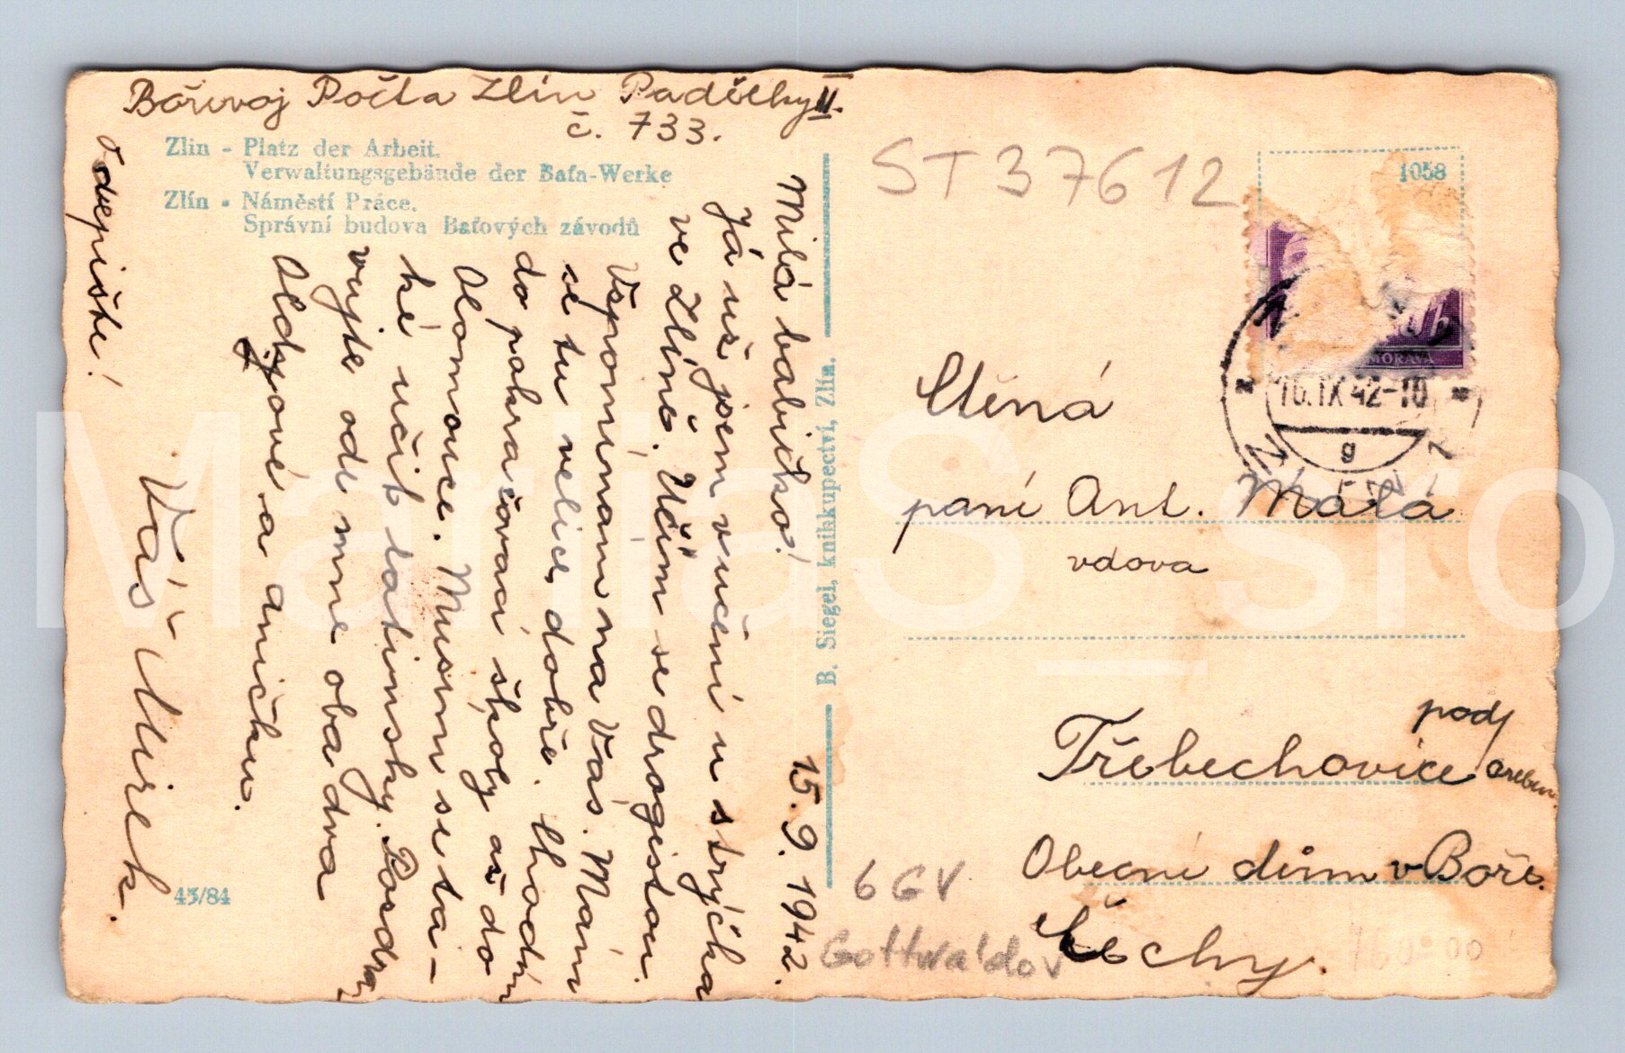 Bořivoj Počta Zlín Padělky II.
č. 733.
Zlin - Platz der Arbeit.
Verwaltungsgebäude der Baťa-Werke
Zlín - Náměstí Práce.
Správní budova Baťových závodů
15. 9. 1942.
Milá babičko!
Já už jsem v učení u strýčka
ve Zlíně. Učím se drogistou.
Vzpomínám na Vás. Mám
se tu velice dobře. Chodím
do pokračovací školy až do
Olomouce. Musím se ta-
ké učit latinsky. Pozdra
vujte ode mne oba dva
a aničku.
Váš Mirek.
odepište!
43/84
B. Siegel, knihkupectví, Zlín.
ST37612
1058
MORAVA
16.IX.42-10
g
Ctěná
paní Ant. Matá
vdova
Třebechovice pod
Oreben.
Obecní dům v Boře.
Čechy.
6 GV
Gottwaldov
160-00
MaliaS_sro